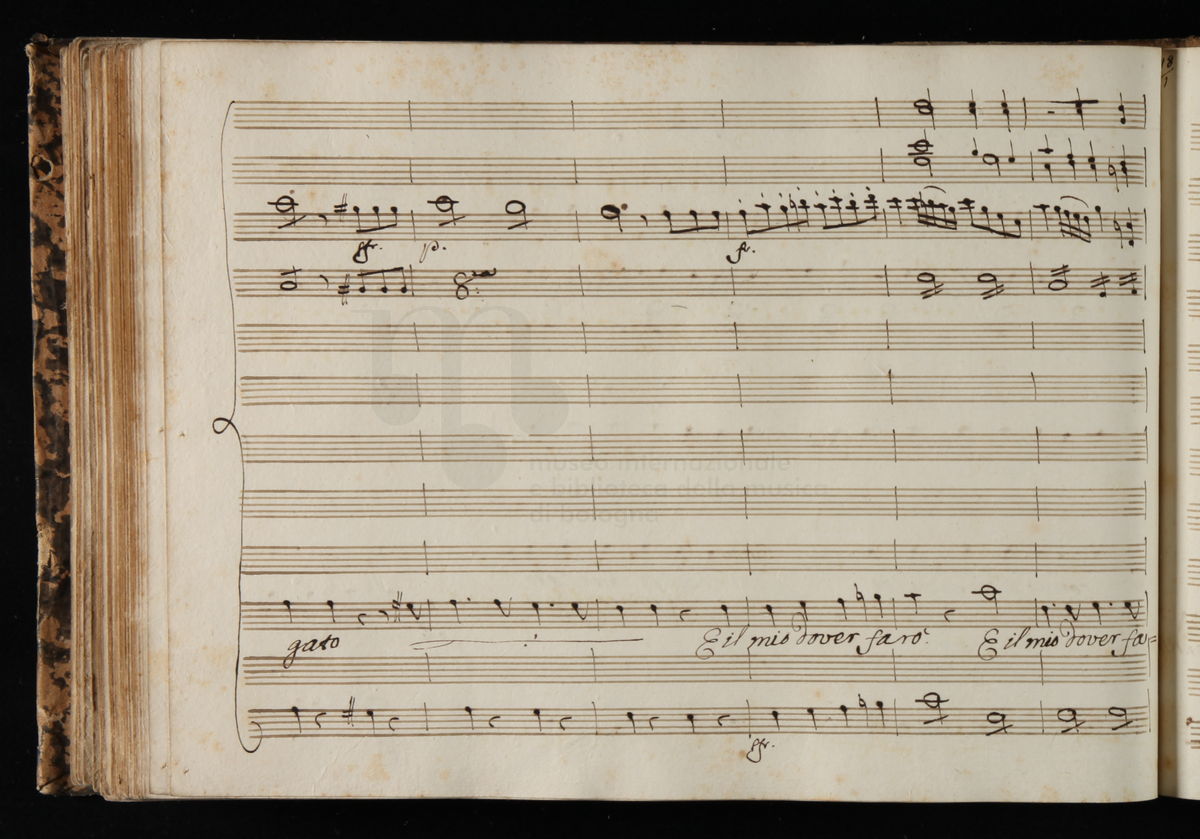 18
1
sfr.
p.
f.
museo internazionale
e biblioteca della musica
di bologna
gato E il mio dover farò. E il mio dover fa=
sfr.